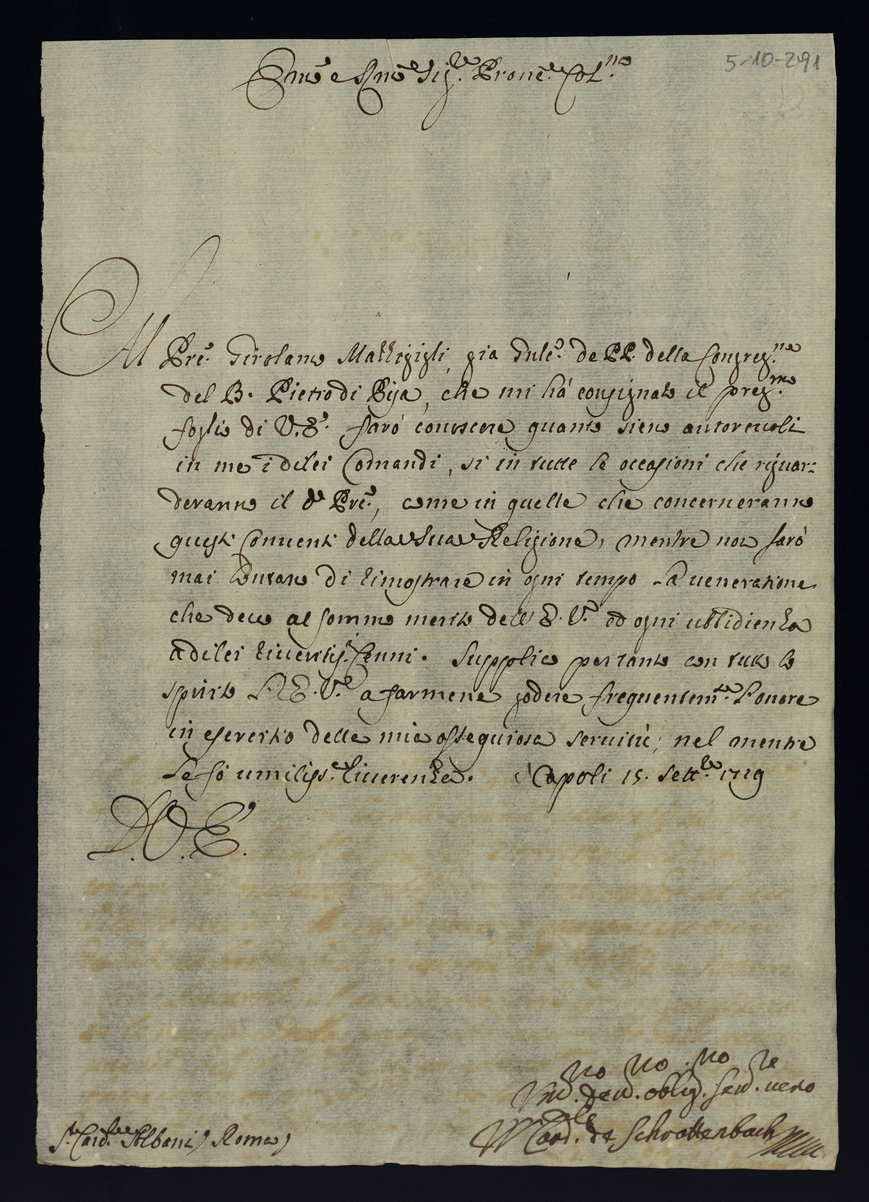 5-10-291
Em.o e R.mo Sig.re Prone Col.mo
Al
Pre. Girolamo Mattigigli, già Gnle. de PP. della Congreg.ne
del B. Pietro di Pisa, che mi hà consignato il preg.mo
foglio di V.E. farò conoscere quanto sieno autorevoli
in me i di lei Comandi, si in tutte le occasioni che riguar=
deranno il d.o Pre, come in quelle che concerneranno
questi Conventi della Sua Religione, mentre non sarò
mai di dimostrare in ogni tempo la venerazione
che devo al sommo merito dell'E.V. ed ogni ubbidienza
a di lei riveritis.i Cenni. Supplico pertanto con tutto lo
spirito l'E.V. a farmene godere frequentem.te l'onore
in esercitio della mia ossequiosa servitù; nel mentre
le fò umiliss.e riverenze. Napoli 15. Sett.bre 1719
D.V.E.
S.r Card.le Albani, Roma
Um.o dev.o oblig.mo Ser.re vero
W Card.le de Schrattenbach